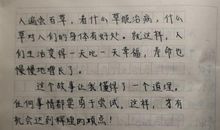 人遍尝百草，看什么草能治病，什么
草对人们的身体有好处。就这样，人
们生活变得一天比一天幸福，寿命也
慢慢地增长了。
这个故事让我懂得了一个道理，
任何事情都要勇于尝试，这样，才有
机会达到辉煌的顶点！